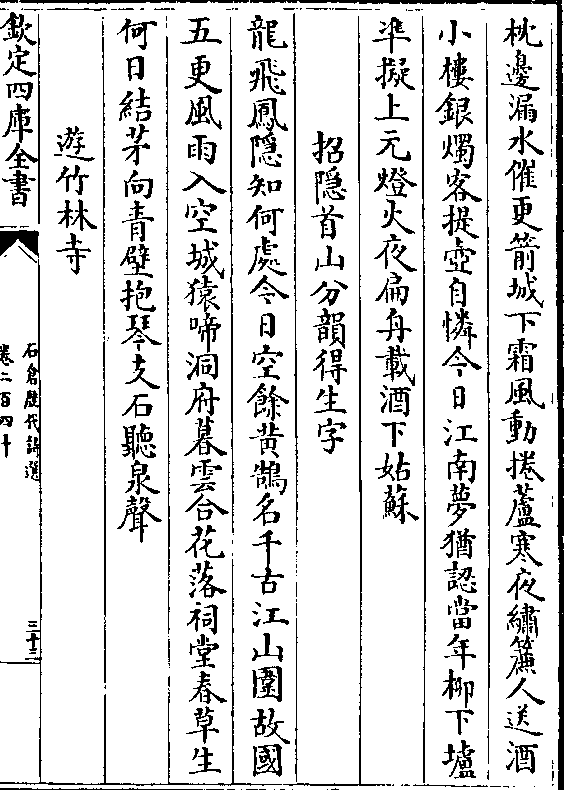 枕邊漏水催更箭城下霜風動捲蘆寒夜繡簾人送酒
小樓銀燭客提壺自憐今日江南夢猶認當年柳下壚
凖擬上元燈火夜扁舟載酒下姑蘇
招隠首山分韻得生字
龍飛鳳隠知何處今日空餘黄鵠名千古江山圍故國
五更風雨入空城猿啼洞府暮雲合花落祠堂春草生
何日結茅向青壁抱琴支石聽泉聲
遊竹林寺
欽定四庫全書
石倉歴代詩選
卷二百四十
三十三